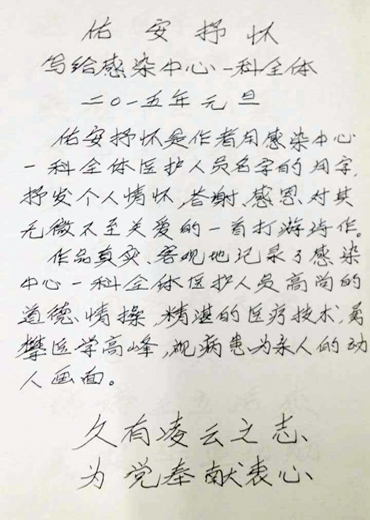 佑安抒怀
写给感染中心一科全体
二〇一五年元旦
佑安抒怀是作者用感染中心
一科全体医护人员名字的用字,
抒发个人情怀,答谢、感恩、对其
无微不至关爱的一首打游诗作。
作品真实、客观地记录了感染
中心一科全体医护人员高尚的
道德、情操,精湛的医疗技术,勇
攀医学高峰,视病患为亲人的动
人画面。
久有凌云之志、
为党奉献衷心、